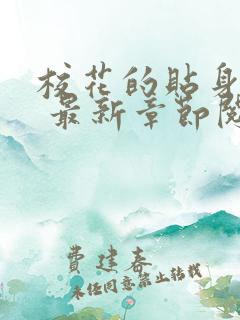 校花的貼身
最新章節閱
費建春
未经同意禁止转载